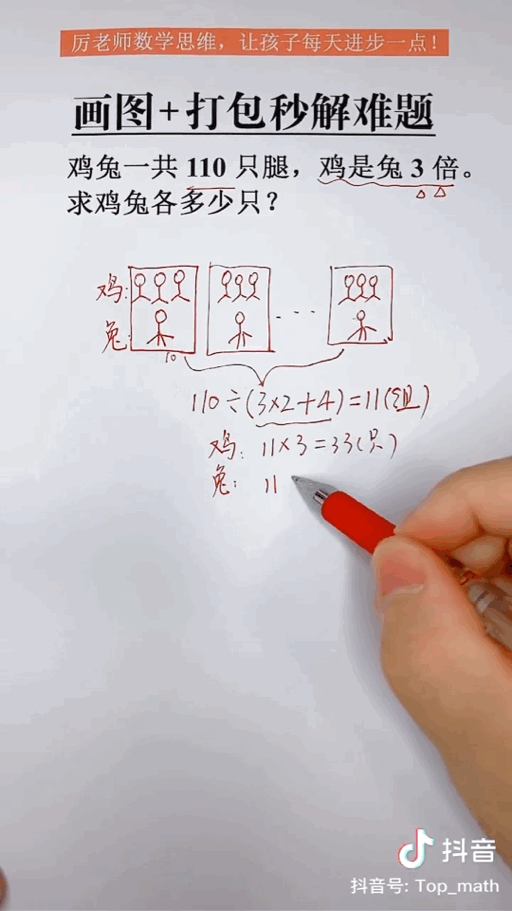 厉老师数学思维，让孩子每天进步一点！
画图+打包秒解难题
鸡兔一共 110 只腿，鸡是兔 3 倍。
求鸡兔各多少只？
鸡:
兔:
10
...
110÷(3×2+4)=11(组)
鸡: 11×3=33(只)
兔: 11
抖音
抖音号: Top_math